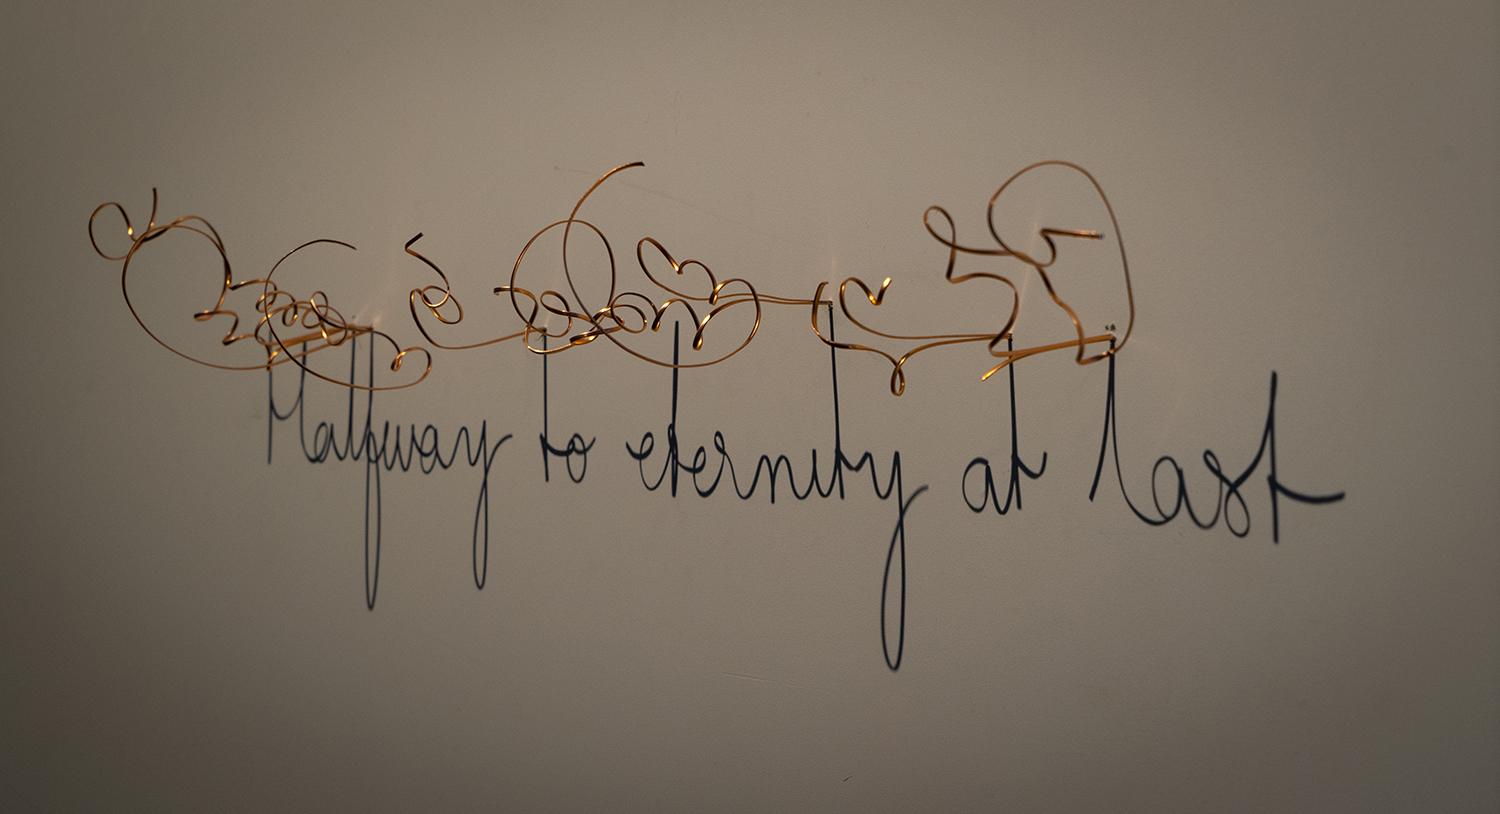 Halfway to eternity at last